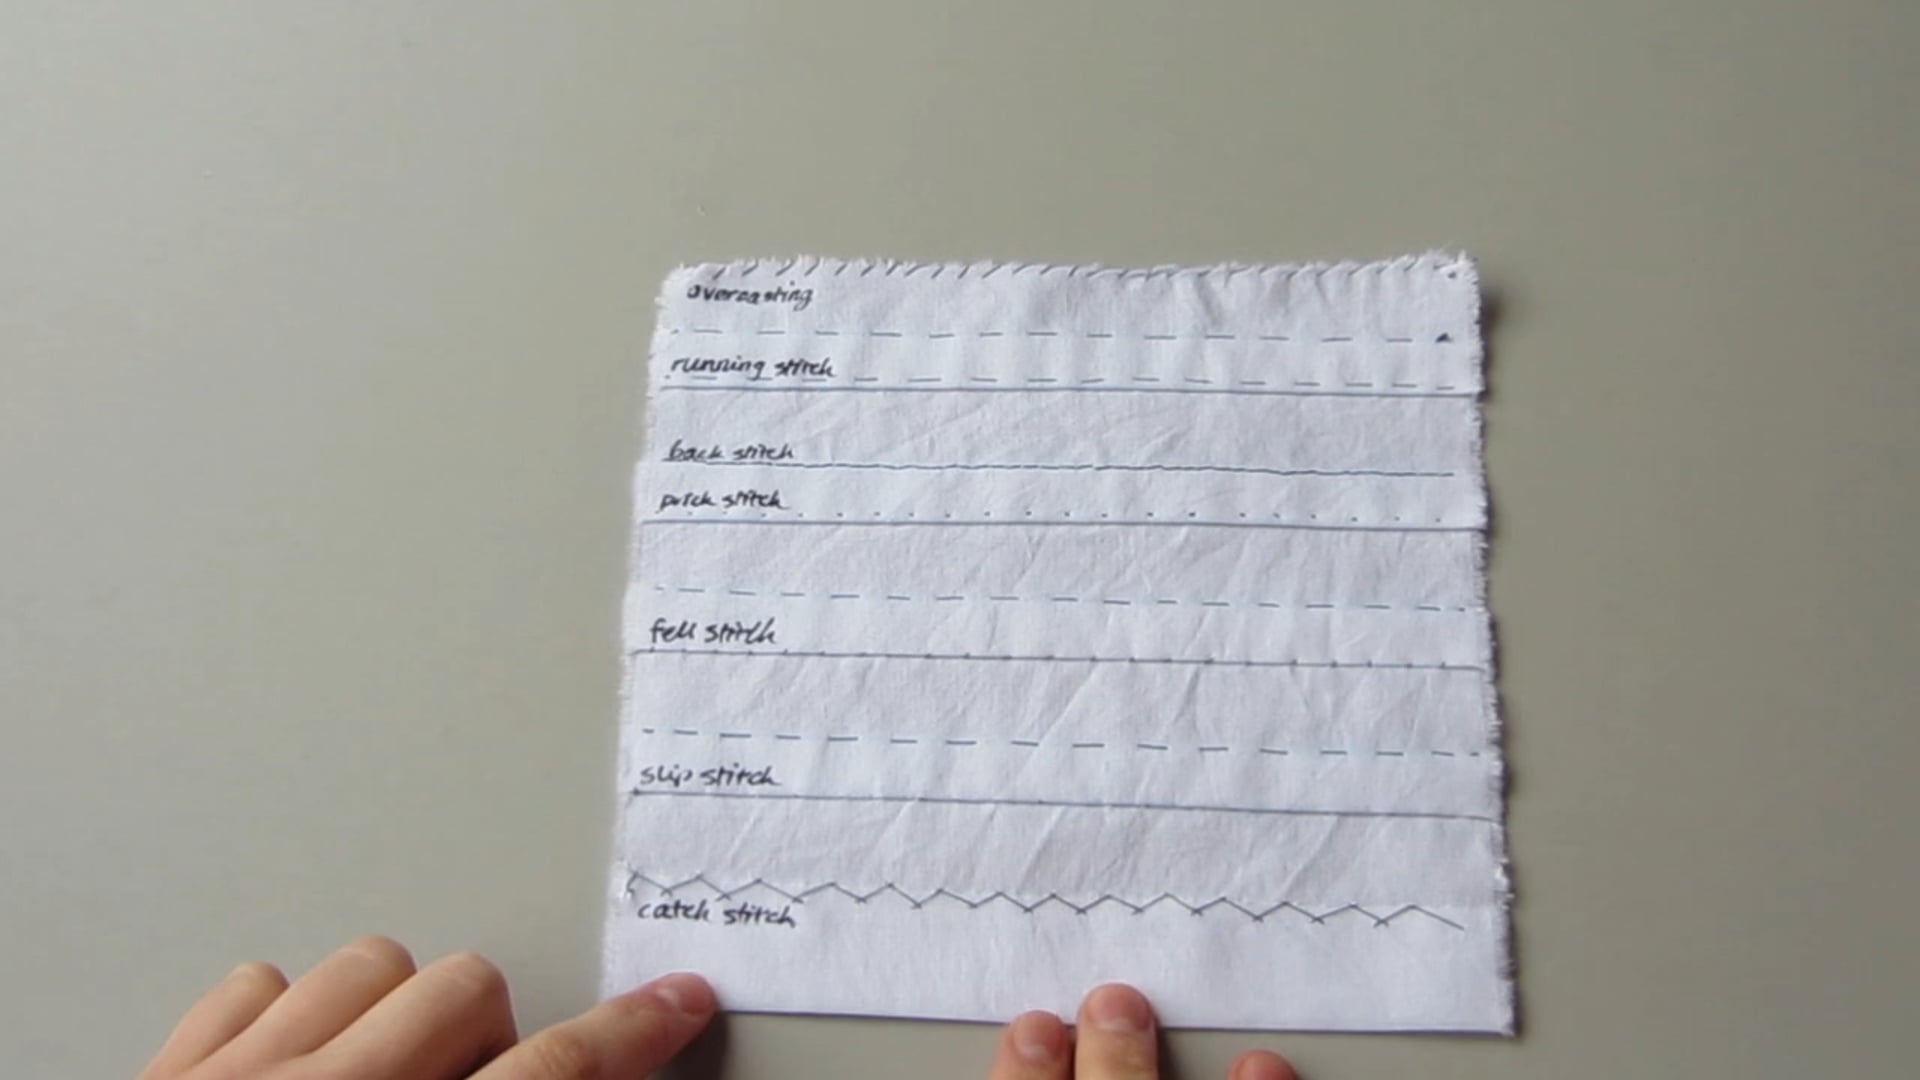 overcasting
running stitch
back stitch
prick stitch
fell stitch
slip stitch
catch stitch